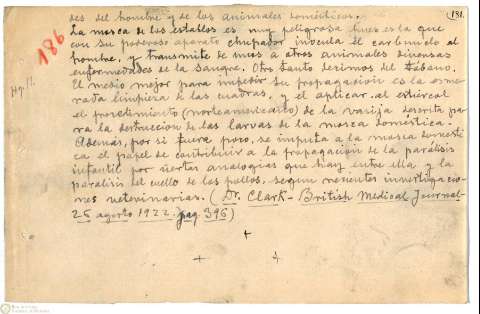 des del hombre y de los animales domésticos.
(181.
186
La mosca de los establos es muy peligrosa pues es la que
con su poderoso aparato chupador inocula el carbunclo al
hombre, y transmite de unos a otros animales diversas
enfermedades de la sangre. Otro tanto decimos del tábano.
El medio mejor para impedir su propagación es la esme-
rada limpieza de las cuadras, y el aplicar al estiércol
el procedimiento (norteamericano) de la vasija descrita pa-
ra la destrucción de las larvas de la mosca doméstica.
Además, por si fuera poco, se imputa a la mosca domésti-
ca el papel de contribuir a la propagación de la parálisis
infantil por ciertas analogías que hay entre ella y la
parálisis del cuello de los pollos, según recientes investigacio-
nes veterinarias. (Dr. Clark - British Medical Journal -
26 agosto 1922. pag. 396)